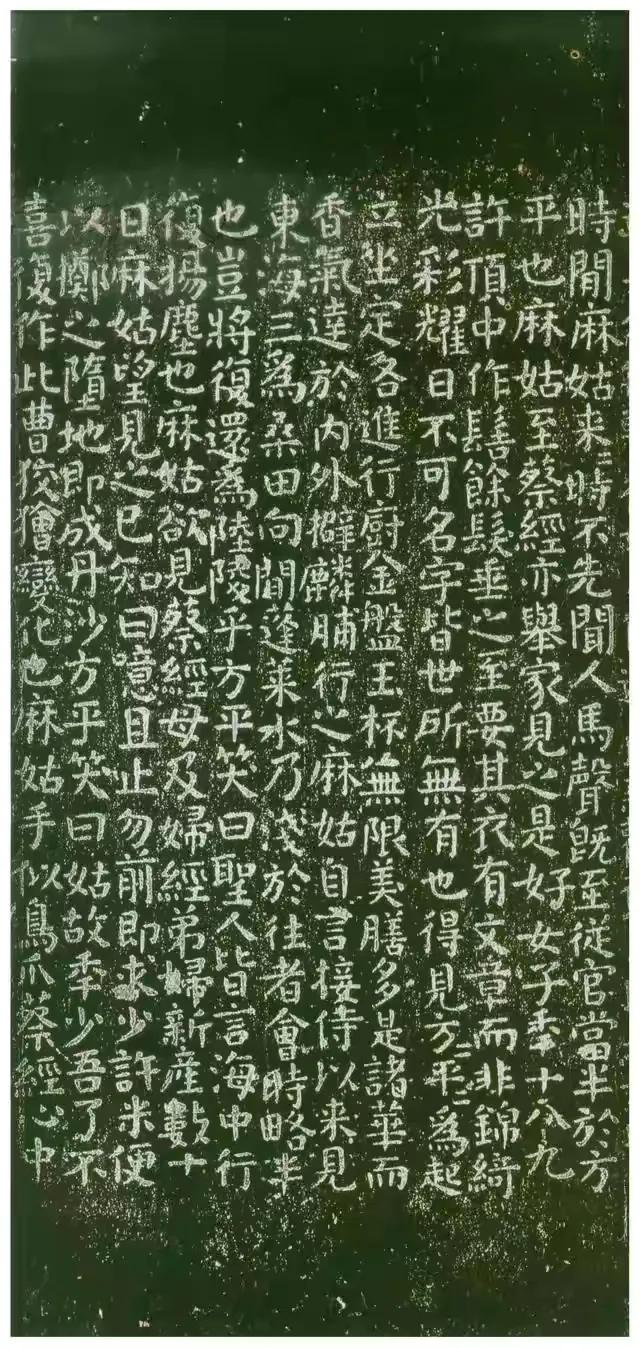 時間麻姑来=時不先聞人馬聲既至従官當半於方
平也麻姑至蔡經亦舉家見之是好女子秊十八九
許頂中作髻餘髮垂之至要其衣有文章而非錦綺
光彩耀日不可名字皆世所無有也得見方=平=為起
立坐定各進行廚金盤玉杯無限美膳多是諸華而
香氣達於内外擗麟脯行之麻姑自言接侍以来見
東海三為桑田向間蓬莱水乃淺於往者會時略半
也豈將復還為陸陵乎方平笑曰聖人皆言海中行
復揚塵也麻姑欲見蔡經母及婦經弟婦新産數十
日麻姑望見之已知曰噫且止勿前即求少許米便
以擲之墮地即成丹沙方平笑曰姑故秊少吾了不
喜復作此曹狡獪變化也麻姑手似鳥爪蔡經心中